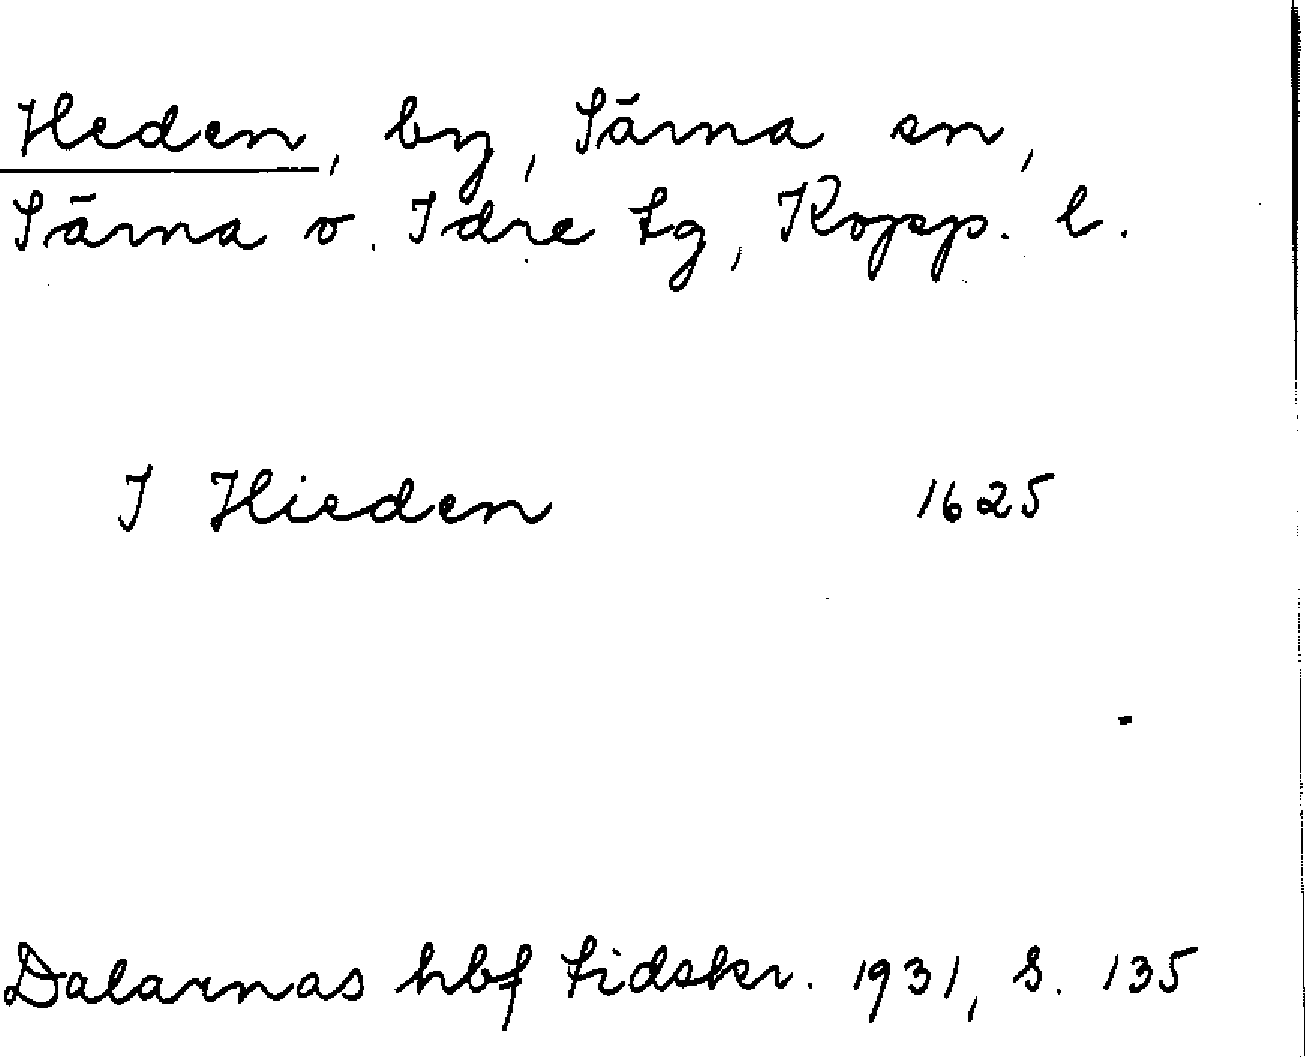 Heden, by, Särna sn,
Särna o. Idre tg, Kopp. l.
I Hieden 1625
Dalarnas hbf tidskr. 1931, s. 135